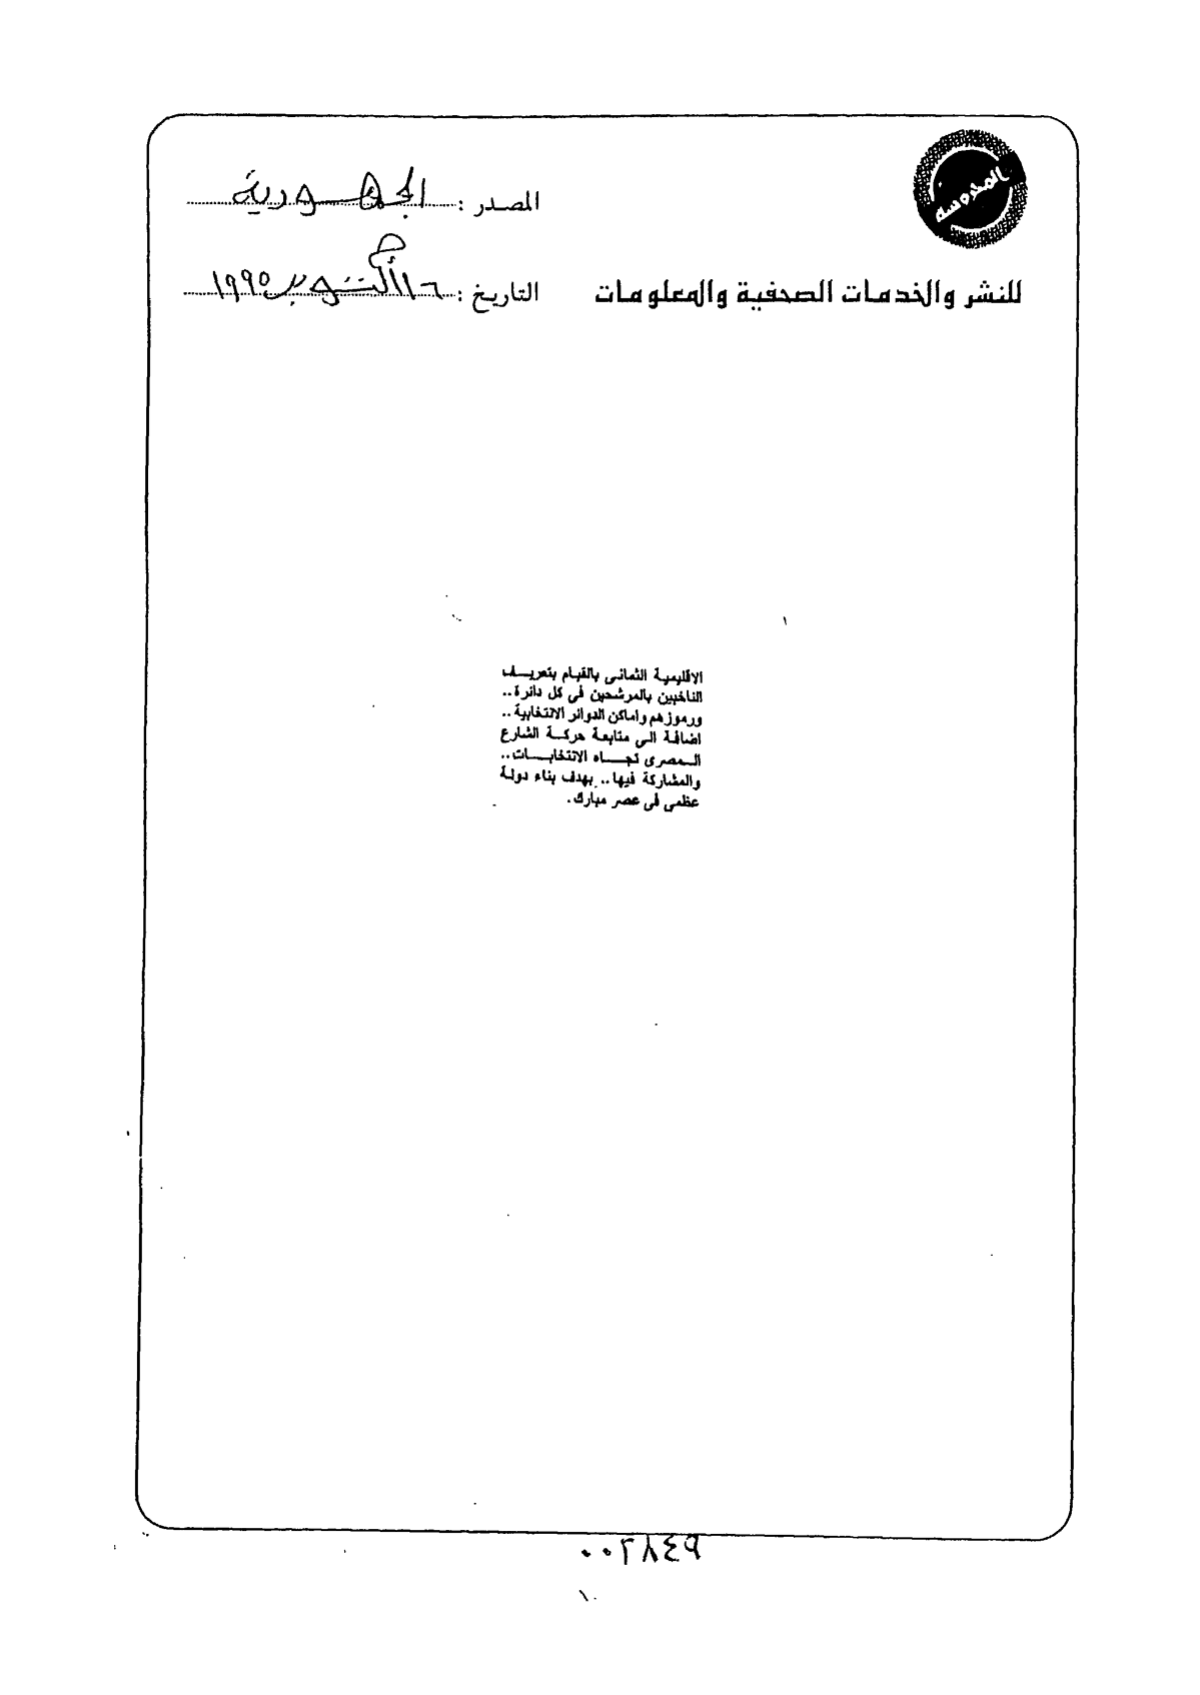 المحروسة
المصدر : الجمهورية
للنشر والخدمات الصحفية والمعلومات
التاريخ : ١٦ أكتوبر ١٩٩٥
الاقليمية الثمانى بالقيام بتعريف
الناخبين بالمرشحين فى كل دائرة..
ورموزهم واماكن الدوائر الانتخابية..
اضافة الى متابعة حركة الشارع
المصرى تجاه الانتخابات..
والمشاركة فيها.. بهدف بناء دولة
عظمى فى عصر مبارك.
٠٠٢٨٤٩
١٠